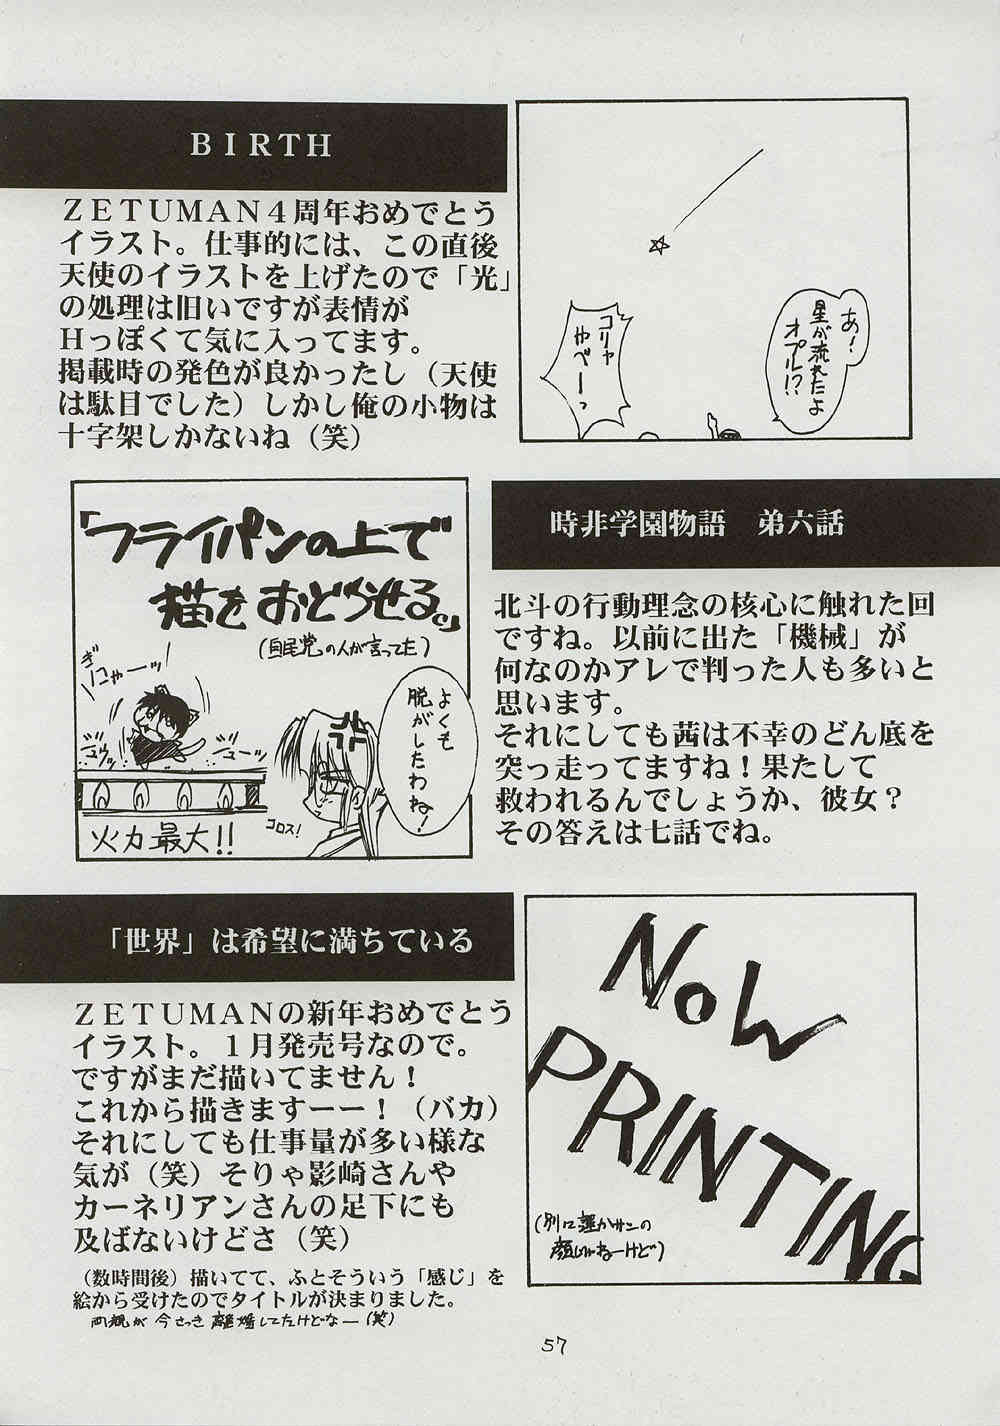 BIRTH
ZETUMAN4周年おめでとう
イラスト。仕事的には、この直後
天使のイラストを上げたので「光」
の処理は旧いですが表情が
Hっぽくて気に入ってます。
掲載時の発色が良かったし（天使
は駄目でした）しかし俺の小物は
十字架しかないね（笑）
あ！
星が流れたよ
オプル!?
コリャ
やべーっ
時非学園物語　弟六話
北斗の行動理念の核心に触れた回
ですね。以前に出た「機械」が
何なのかアレで判った人も多いと
思います。
それにしても茜は不幸のどん底を
突っ走ってますね！果たして
救われるんでしょうか、彼女？
その答えは七話でね。
「フライパンの上で
猫をおどらせる。」
（自民党の人が言ってた）
ぎにゃーッ！
ジュゥッ
ジューッ
火力最大!!
コロス！
よくも
脱がしたわね！
「世界」は希望に満ちている
ZETUMANの新年おめでとう
イラスト。1月発売号なので。
ですがまだ描いてません！
これから描きますーー！（バカ）
それにしても仕事量が多い様な
気が（笑）そりゃ影崎さんや
カーネリアンさんの足下にも
及ばないけどさ（笑）
（数時間後）描いてて、ふとそういう「感じ」を
絵から受けたのでタイトルが決まりました。
両親が今さっき離婚してたけどなー（笑）
NOW
PRINTING
（別に誰かサンの
顔じゃねーけど）
57